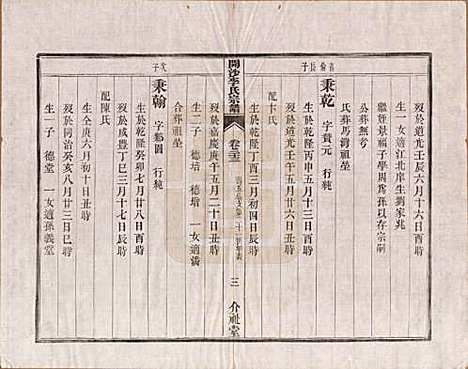 歿於道光壬辰六月十六日酉時
生一女適江北岸生劉家兆
繼晉景福子學周爲孫以存宗嗣
公葬無考
氏葬馬灣祖塋
長子
秉乾 字贊元 行純
生於乾隆丙申五月十三日酉時
歿於道光壬午五月廿六日丑時
配卞氏
生於乾隆丁酉八月初三日辰時
歿於嘉慶庚午五月二十日丑時
生二子 德培 德增 一女適潘
合葬祖塋
開沙李氏宗譜
卷二十三
三
介祉堂
次子
秉翰 字點園 行純
生於乾隆癸卯七月廿八日酉時
歿於咸豊丁巳三月十七日辰時
配陳氏
生全庚六月初十日丑時
歿於同治癸亥八月廿三日巳時
生一子 德堂 一女適孫義堂